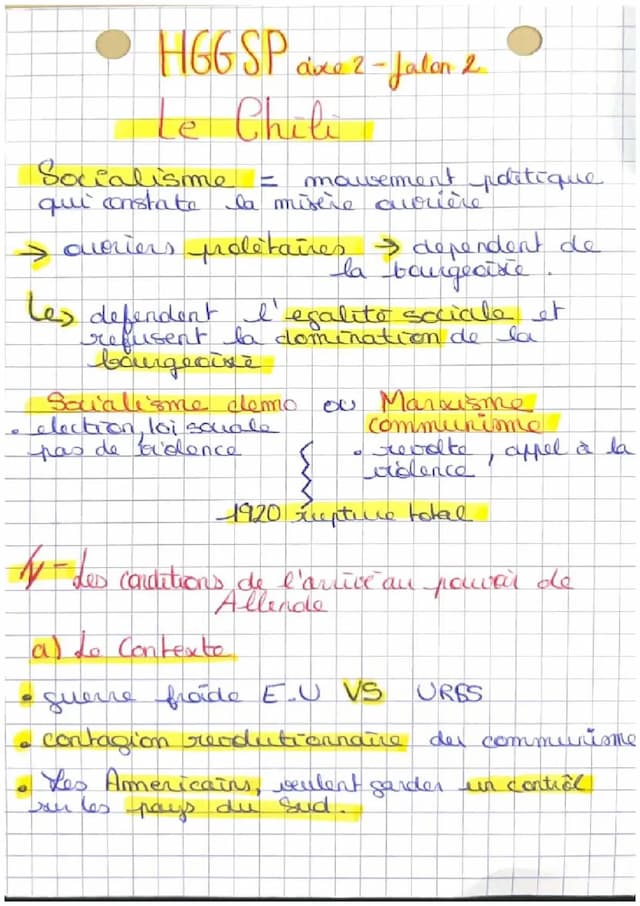 HGGSP axe 2 - Jalon 2
Le Chili
Socialisme = mouvement politique
qui constate la misère ouvrière
→ ouvriers prolétaires → dependent de
la bourgeoisie.
Les defendent l'egalité sociale et
refusent la domination de la
bourgeoisie
Socialisme demo ou Marxisme
communisme
• election, loi sociale
pas de violence
• revolte, appel à la
violence
1920 rupture total
1/- Les conditions de l'arrivé au pouvoir de
Allende
a) Le Contexte
• guerre froide E-U VS URSS
• contagion revolutionnaire du communisme
• Les Americains, veulent garder un contrôl
sur les pays du Sud.